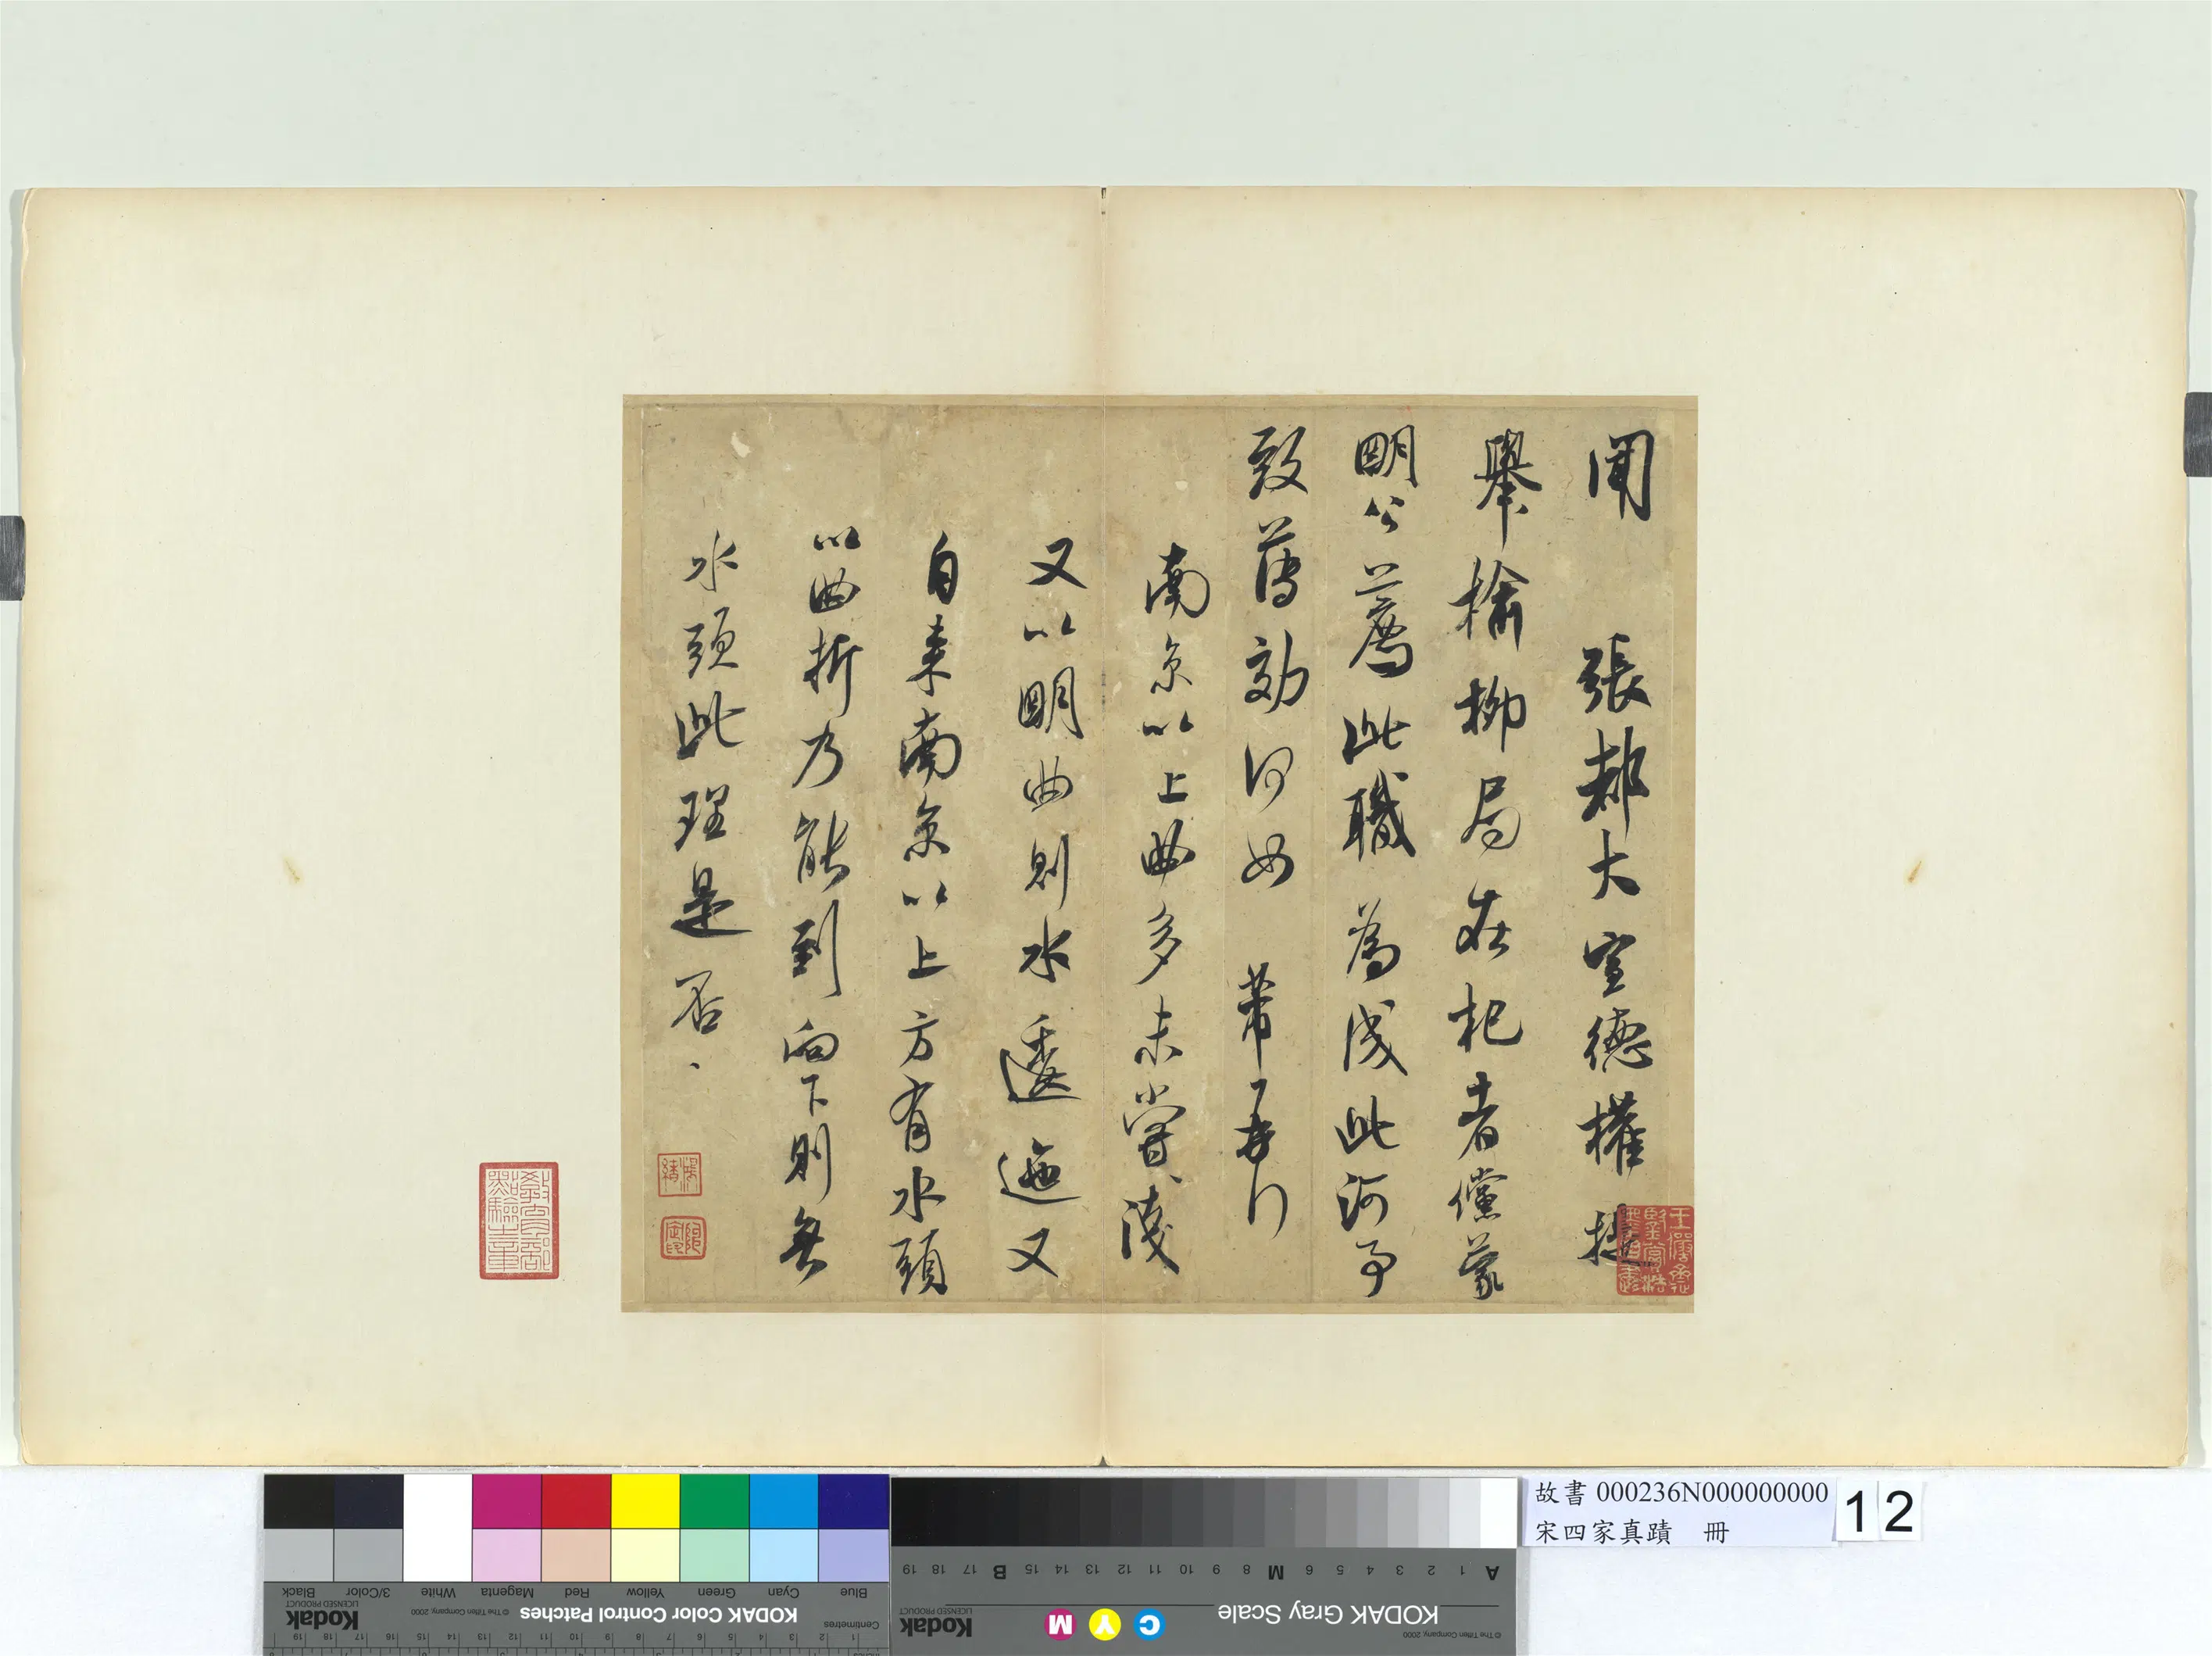 聞　張都大宣德權提
舉榆柳局在杞者儻蒙
明公薦此職為成此河事
致薄効何如　芾再行
南京以上曲多未嘗淺
又以明曲則水逶迤又
自来南京以上方有水頭
以曲折乃能到向下則無
水頭此理是否
故書 000236N000000000
宋四家真蹟　冊
12
Blue Cyan Green Yellow Red Magenta White 3/Color Black
KODAK Color Control Patches
© The Tiffen Company, 2000
Kodak
LICENSED PRODUCT
Centimetres
KODAK Gray Scale
C Y M
Kodak
LICENSED PRODUCT
© The Tiffen Company, 2000
A 1 2 3 4 5 6 M 8 9 10 11 12 13 14 15 B 17 18 19